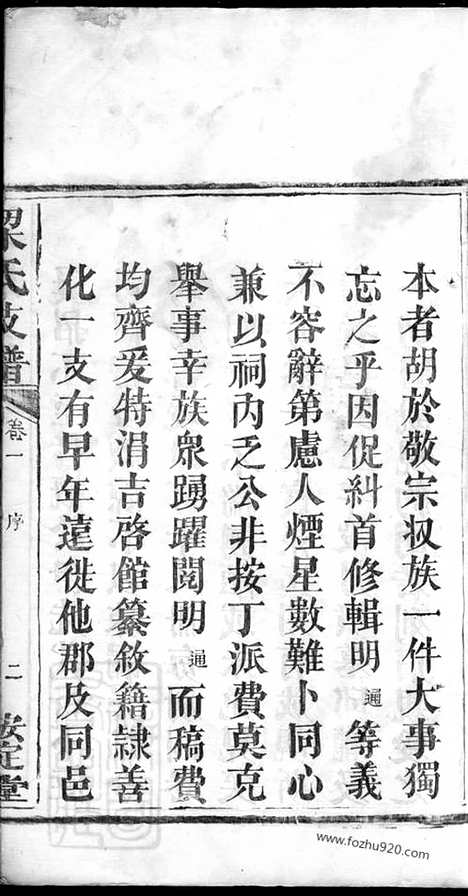 本者胡於敬宗收族一件大事獨
忘之乎因促糾首修輯明遹等義
不容辭第慮人煙星數難卜同心
兼以祠內乏公非按丁派費莫克
舉事幸族眾踴躍閱明遹而稿費
均齊爰特涓吉啓館纂敘籍隷善
化一支有早年遠徙他郡及同邑
梁氏支譜 卷一 序 二 安定堂
www.fozhu920.com